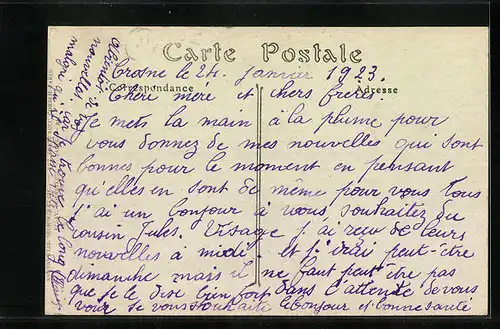 Carte Postale
Correspondance
Adresse
Crosne le 24 Janvier 1923.
Chère mère et chers frères
Je mets la main à la plume pour
vous donnez de mes nouvelles qui sont
bonnes pour le moment en pensant
qu'elles en sont de même pour vous tous
j'ai un bonjour à vous souhaitez du
cousin Jules. Visage j'ai reçu de leurs
nouvelles à midi et j'irai peut-être
dimanche mais il ne faut peut être pas
que je le dise bien fort dans l'attente de vous
voir je vous souhaite le bonjour et bonne santé
nouvelles de